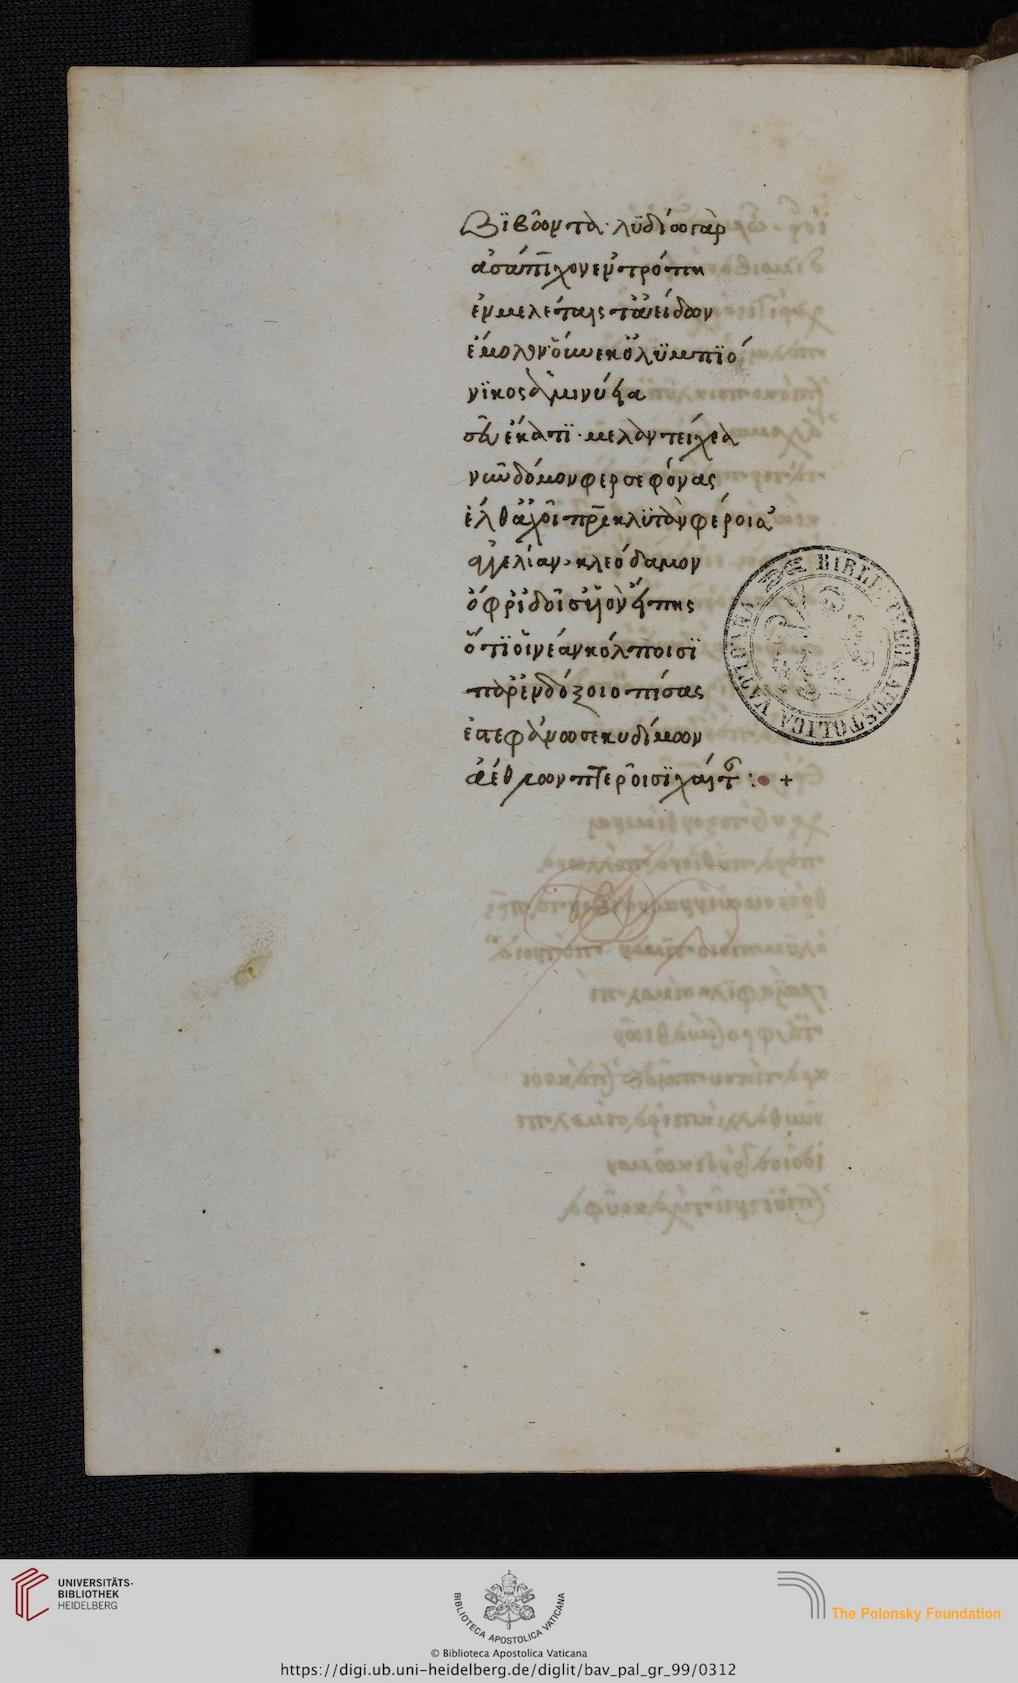 βϊβῶντα· λυδίω γὰρ
ἀσώπιχον ἐν τρόπῳ
ἐν μελέταις τ' ἀείδων
ἔμολον οὕνεκ' ὀλυμπιό
νικος ἁ μινύεια
σεῦ ἕκατι· μελαντειχέα
νῦν δόμον φερσεφόνας
ἐλθ' ἀχοῖ πρι κλυτὰν φέροισ'
ἀγγελίαν· κλεόδαμον
ὄφρ' ἰδοῖσ' υἱὸν εἴπῃς
ὅτι οἱ νέαν κόλποισι
παρ' ἐνδόξοιο πίσας
ἐστεφάνωσε κυδίμων
ἀέθλων πτεροῖσι χαίταν :· +
BIBLIOTHECA APOSTOLICA VATICANA
UNIVERSITÄTS-
BIBLIOTHEK
HEIDELBERG
BIBLIOTECA APOSTOLICA VATICANA
The Polonsky Foundation
© Biblioteca Apostolica Vaticana
https://digi.ub.uni-heidelberg.de/diglit/bav_pal_gr_99/0312